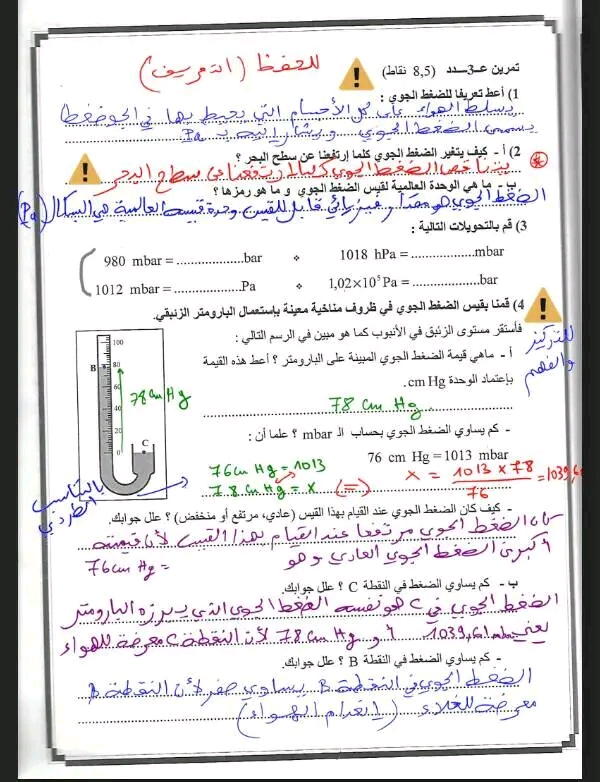 للحفظ (التعريف)
تمرين عـ3ـدد (8,5 نقاط)
1) أعط تعريفا للضغط الجوي :
يسلط الهواء على كل الأجسام التي يحيط بها في الجو ضغطا
يسمى الضغط الجوي ويشار إليه بـ Pa
2) أ - كيف يتغير الضغط الجوي كلما إرتفعنا عن سطح البحر ؟
يتناقص الضغط الجوي كلما ارتفعنا عن سطح البحر
ب - ما هي الوحدة العالمية لقيس الضغط الجوي و ما هو رمزها ؟
الضغط الجوي هو مقدار فيزيائي قابل للقيس وحدة قيسه العالمية هي البسكال (Pa)
3) قم بالتحويلات التالية :
980 mbar = ..................bar ❖ 1018 hPa = ..................mbar
1012 mbar = ..................Pa ❖ 1,02×10⁵ Pa = ..................bar
4) قمنا بقيس الضغط الجوي في ظروف مناخية معينة بإستعمال البارومتر الزئبقي.
فأستقر مستوى الزئبق في الأنبوب كما هو مبين في الرسم التالي :
للتركيز
والفهم
أ - ماهي قيمة الضغط الجوي المبينة على البارومتر ؟ أعط هذه القيمة
بإعتماد الوحدة cm Hg.
78 cm Hg
100
B
80
60
40
20
0
C
78 cm Hg
- كم يساوي الضغط الجوي بحساب الـ mbar ؟ علما أن :
76 cm Hg = 1013 mbar
76 cm Hg = 1013
78 cm Hg = x (=) x = 1013 x 78 = 1039,6
76
بالتناسب
الطردي
- كيف كان الضغط الجوي عند القيام بهذا القيس (عادي، مرتفع أو منخفض) ؟ علل جوابك.
كان الضغط الجوي مرتفعا عند القيام بهذا القيس لأن قيمته
أكبر من الضغط الجوي العادي وهو
= 76 cm Hg
ب - كم يساوي الضغط في النقطة C ؟ علل جوابك.
الضغط الجوي في C هو نفسه الضغط الجوي الذي يبرزه البارومتر
يعني 1039,61 mbar أو 78 cm Hg لأن النقطة C معرضة للهواء
- كم يساوي الضغط في النقطة B ؟ علل جوابك.
الضغط الجوي في النقطة B يساوي صفر لأن النقطة B
معرضة للخلاء (إنعدام الهواء)